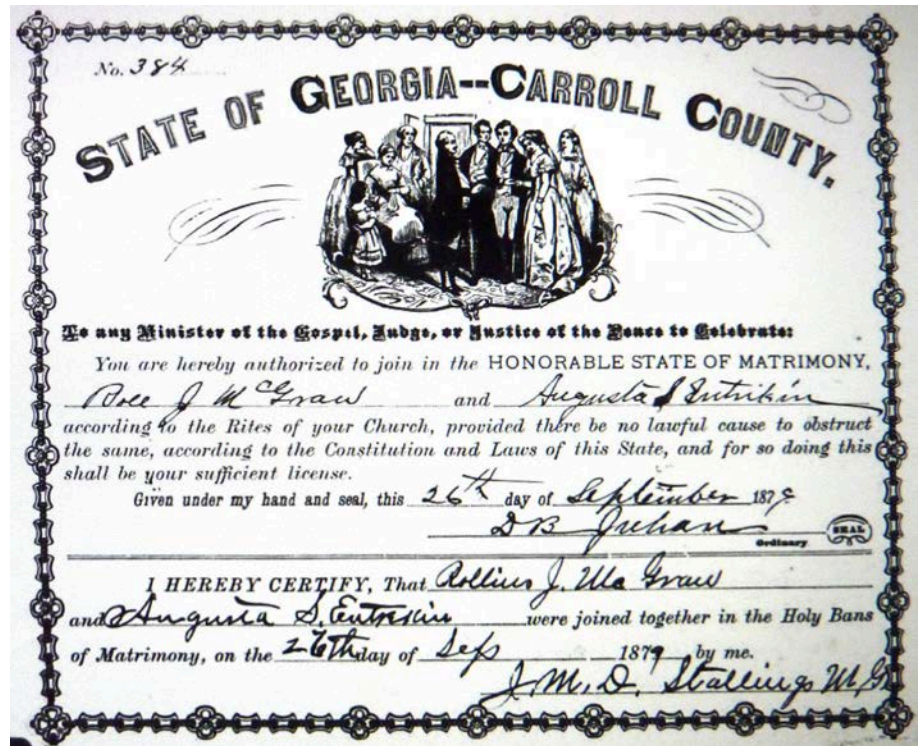 No. 384
STATE OF GEORGIA--CARROLL COUNTY.
To any Minister of the Gospel, Judge, or Justice of the Peace to Celebrate:
You are hereby authorized to join in the HONORABLE STATE OF MATRIMONY,
J McGraw and Augusta S Entrikin
according to the Rites of your Church, provided there be no lawful cause to obstruct
the same, according to the Constitution and Laws of this State, and for so doing this
shall be your sufficient license.
Given under my hand and seal, this 26th day of September 1879
D B Juhan SEAL
Ordinary
I HEREBY CERTIFY, That Rollins J. McGraw
and Augusta S. Entrekin were joined together in the Holy Bans
of Matrimony, on the 26th day of Sept 1879 by me.
J. M. D. Stallings M G